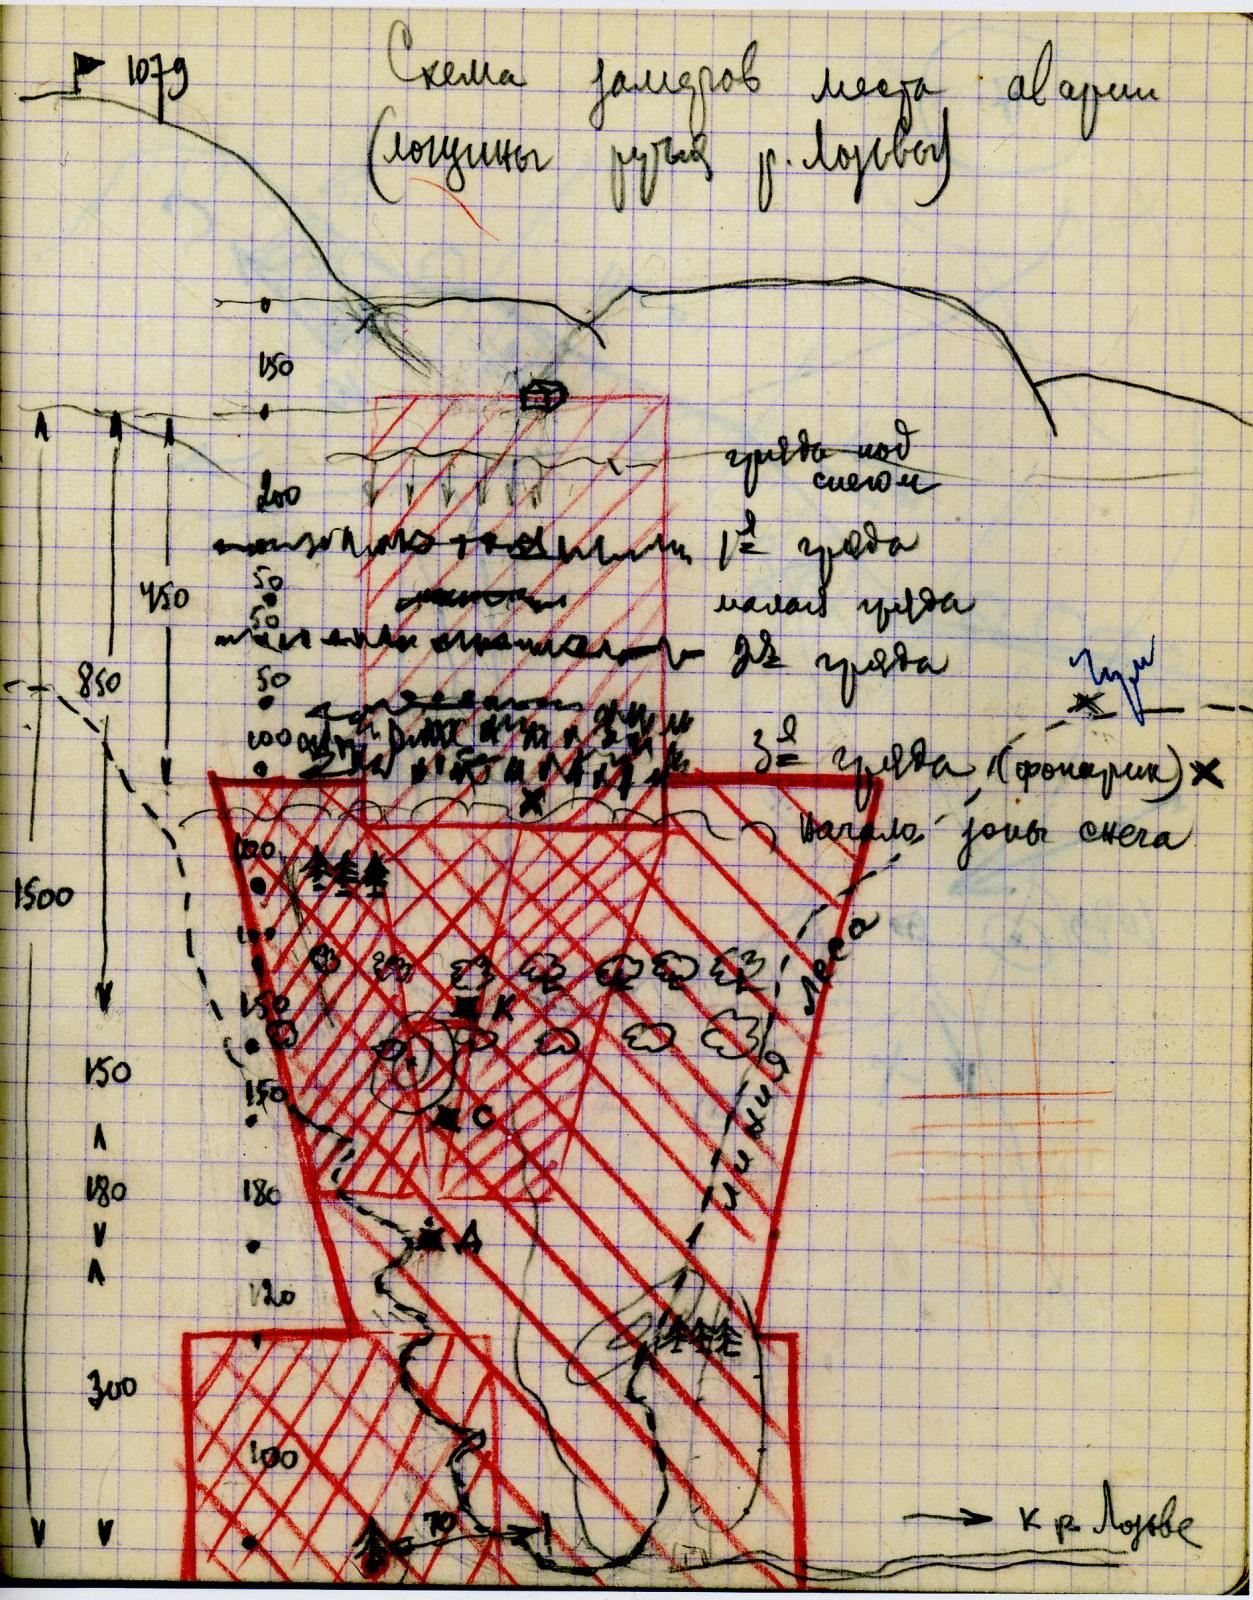 1079
Схема замеров места аварии
(лощины ручья р. Лозьвы)
150
гряда под
снегом
200
1я гряда
50
малая гряда
450
50
2я гряда
850
50
Чум
100
3я гряда (фонарик) X
начало зоны снега
100
1500
100
леса
150
К
150
150
линия
С
180
180
Д
120
300
100
70
к р. Лозьве